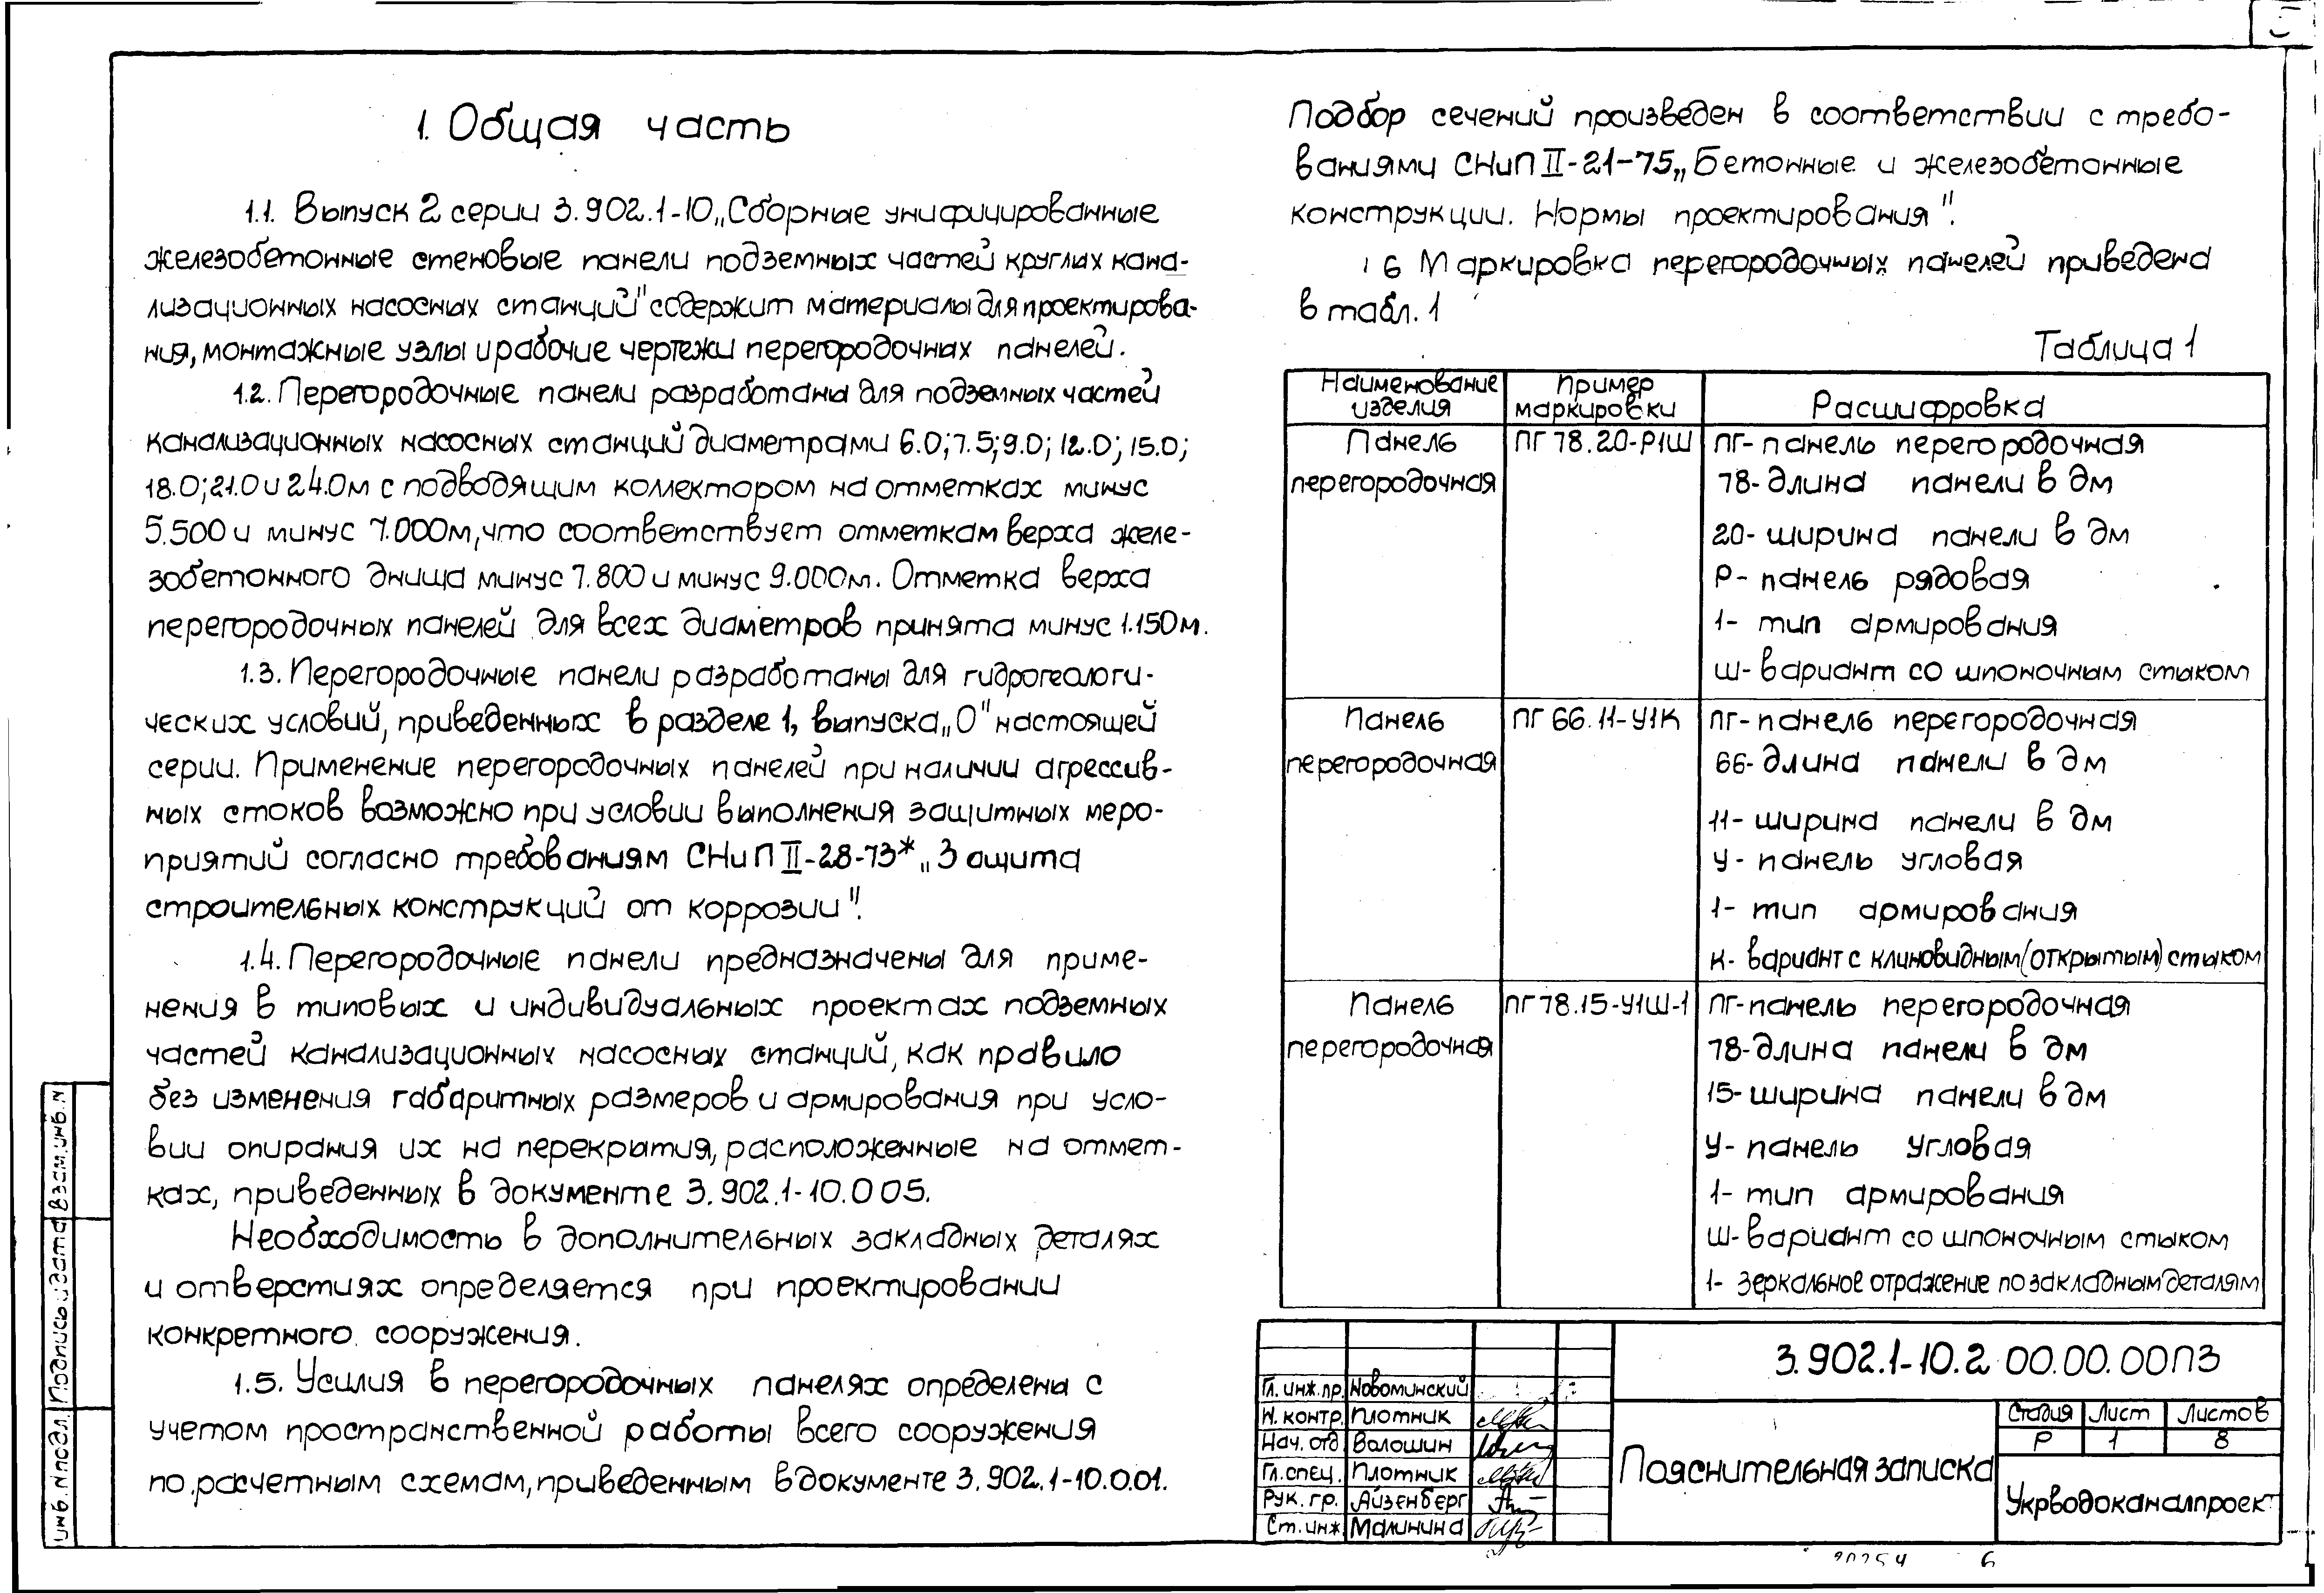 1. Общая часть
1.1. Выпуск 2 серии 3.902.1-10 „Сборные унифицированные
железобетонные стеновые панели подземных частей круглых кана-
лизационных насосных станций" содержит материалы для проектирова-
ния, монтажные узлы и рабочие чертежи перегородочных панелей.
1.2. Перегородочные панели разработаны для подземных частей
канализационных насосных станций диаметрами 6.0; 7.5; 9.0; 12.0; 15.0;
18.0; 21.0 и 24.0м с подводящим коллектором на отметках минус
5.500 и минус 7.000м, что соответствует отметкам верха желе-
зобетонного днища минус 7.800 и минус 9.000м. Отметка верха
перегородочных панелей для всех диаметров принята минус 1.150м.
1.3. Перегородочные панели разработаны для гидрогеологи-
ческих условий, приведенных в разделе 1, выпуска „0" настоящей
серии. Применение перегородочных панелей при наличии агрессив-
ных стоков возможно при условии выполнения защитных меро-
приятий согласно требованиям СНиП II-28-73* „Защита
строительных конструкций от коррозии".
1.4. Перегородочные панели предназначены для приме-
нения в типовых и индивидуальных проектах подземных
частей канализационных насосных станций, как правило
без изменения габаритных размеров и армирования при усло-
вии опирания их на перекрытия, расположенные на отмет-
ках, приведенных в документе 3.902.1-10.0 05.
Необходимость в дополнительных закладных деталях
и отверстиях определяется при проектировании
конкретного сооружения.
1.5. Усилия в перегородочных панелях определены с
учетом пространственной работы всего сооружения
по расчетным схемам, приведенным в документе 3.902.1-10.0.01.
Подбор сечений произведен в соответствии с требо-
ваниями СНиП II-21-75 „Бетонные и железобетонные
конструкции. Нормы проектирования".
1 6 Маркировка перегородочных панелей приведена
в табл. 1
Таблица 1
Наименование изделия | Пример маркировки | Расшифровка
Панель перегородочная | ПГ 78.20-Р1Ш | ПГ- панель перегородочная
78- длина панели в дм
20- ширина панели в дм
Р- панель рядовая
1- тип армирования
Ш- вариант со шпоночным стыком
Панель перегородочная | ПГ 66.11-У1К | ПГ- панель перегородочная
66- длина панели в дм
11- ширина панели в дм
У- панель угловая
1- тип армирования
К- вариант с клиновидным (открытым) стыком
Панель перегородочная | ПГ 78.15-У1Ш-1 | ПГ- панель перегородочная
78- длина панели в дм
15- ширина панели в дм
У- панель угловая
1- тип армирования
Ш- вариант со шпоночным стыком
1- зеркальное отражение по закладным деталям
3.902.1-10.2 00.00.00ПЗ
Гл. инж. пр. Новоминский
Н. контр. Плотник
Нач. отд. Волошин
Гл. спец. Плотник
Рук. гр. Айзенберг
Ст. инж. Малинина
Пояснительная записка
Стадия Лист Листов
Р 1 8
Укрводоканалпроект
Инв. N подл. Подпись и дата Взам. инв. N
6